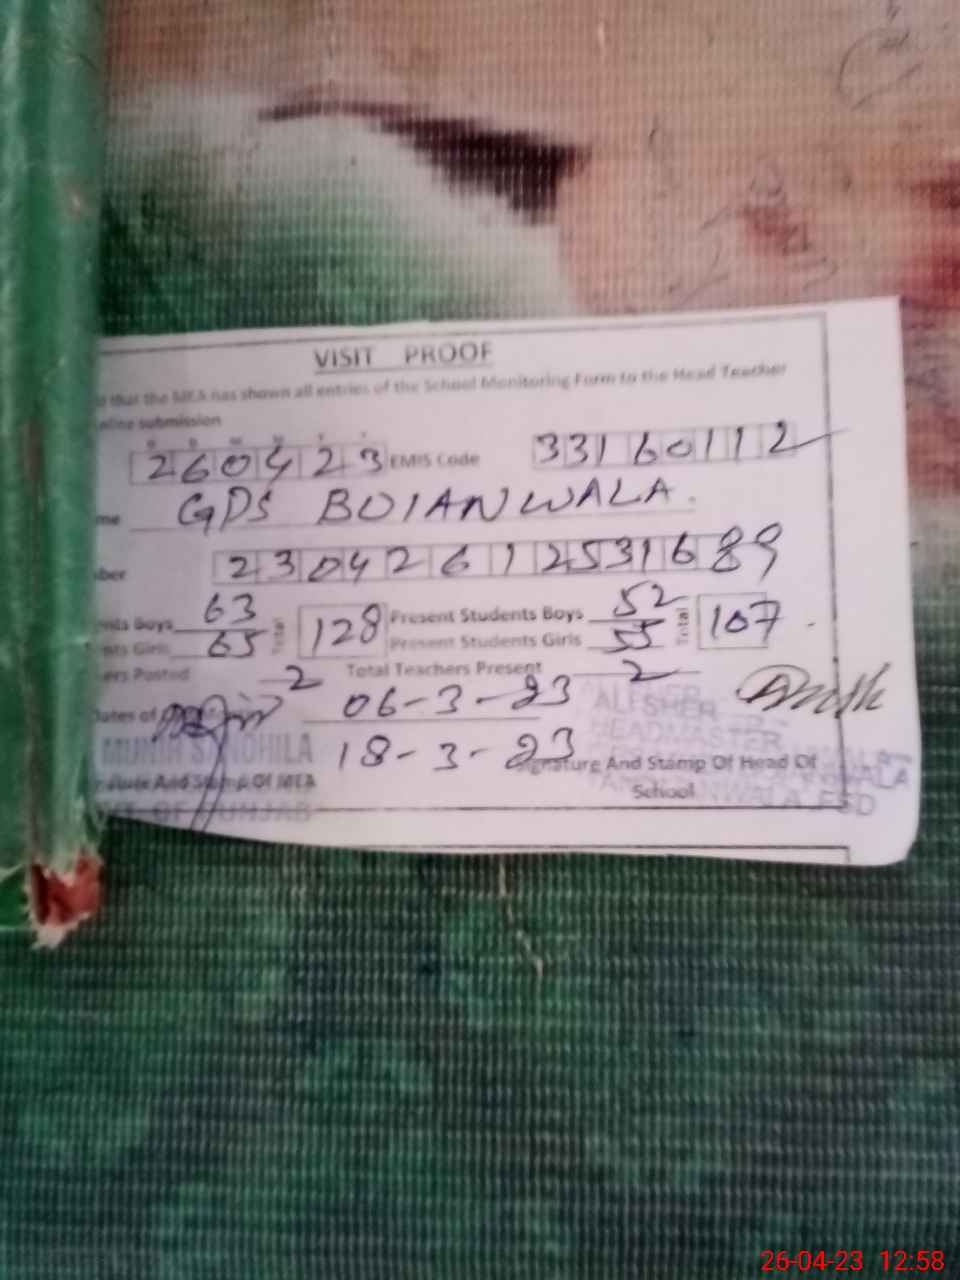 VISIT PROOF
that the MEA has shown all entries of the School Monitoring Form to the Head Teacher
submission
260423 EMIS Code 33160112
me GPS BOIANWALA.
ber 2304261253168 9
nts Boys 63 Total 128 Present Students Boys 52 Total 107
nts Girls 65 Present Students Girls 55
ers Posted 2 Total Teachers Present 2
Dates of 06-3-23
18-3-23
ALI SHER
HEADMASTER
And Stamp Of MEA
Signature And Stamp Of Head Of School
OF PUNJAB
26-04-23 12:58